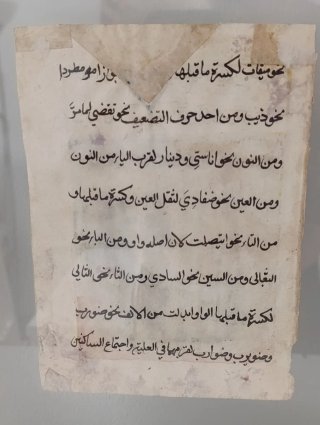 نحو ميقات لكسرة ما قبلها
نحو ذيب ومن احد حروف التضعيف نحو تقضي لما مر
ومن النون نحو اناسي ودينار لقرب الياء من النون
ومن العين نحو ضفادي لثقل العين وكسرة ما قبلها و
من التاء نحو ايتصلت لان اصله واو ومن الباء نحو
الثعالي ومن السين نحو السادي ومن الثاء نحو الثالي
لكسرة ما قبلها الواو ابدلت من الالف نحو ضورب
وضويرب وضوارب في واجتماع الساكنين